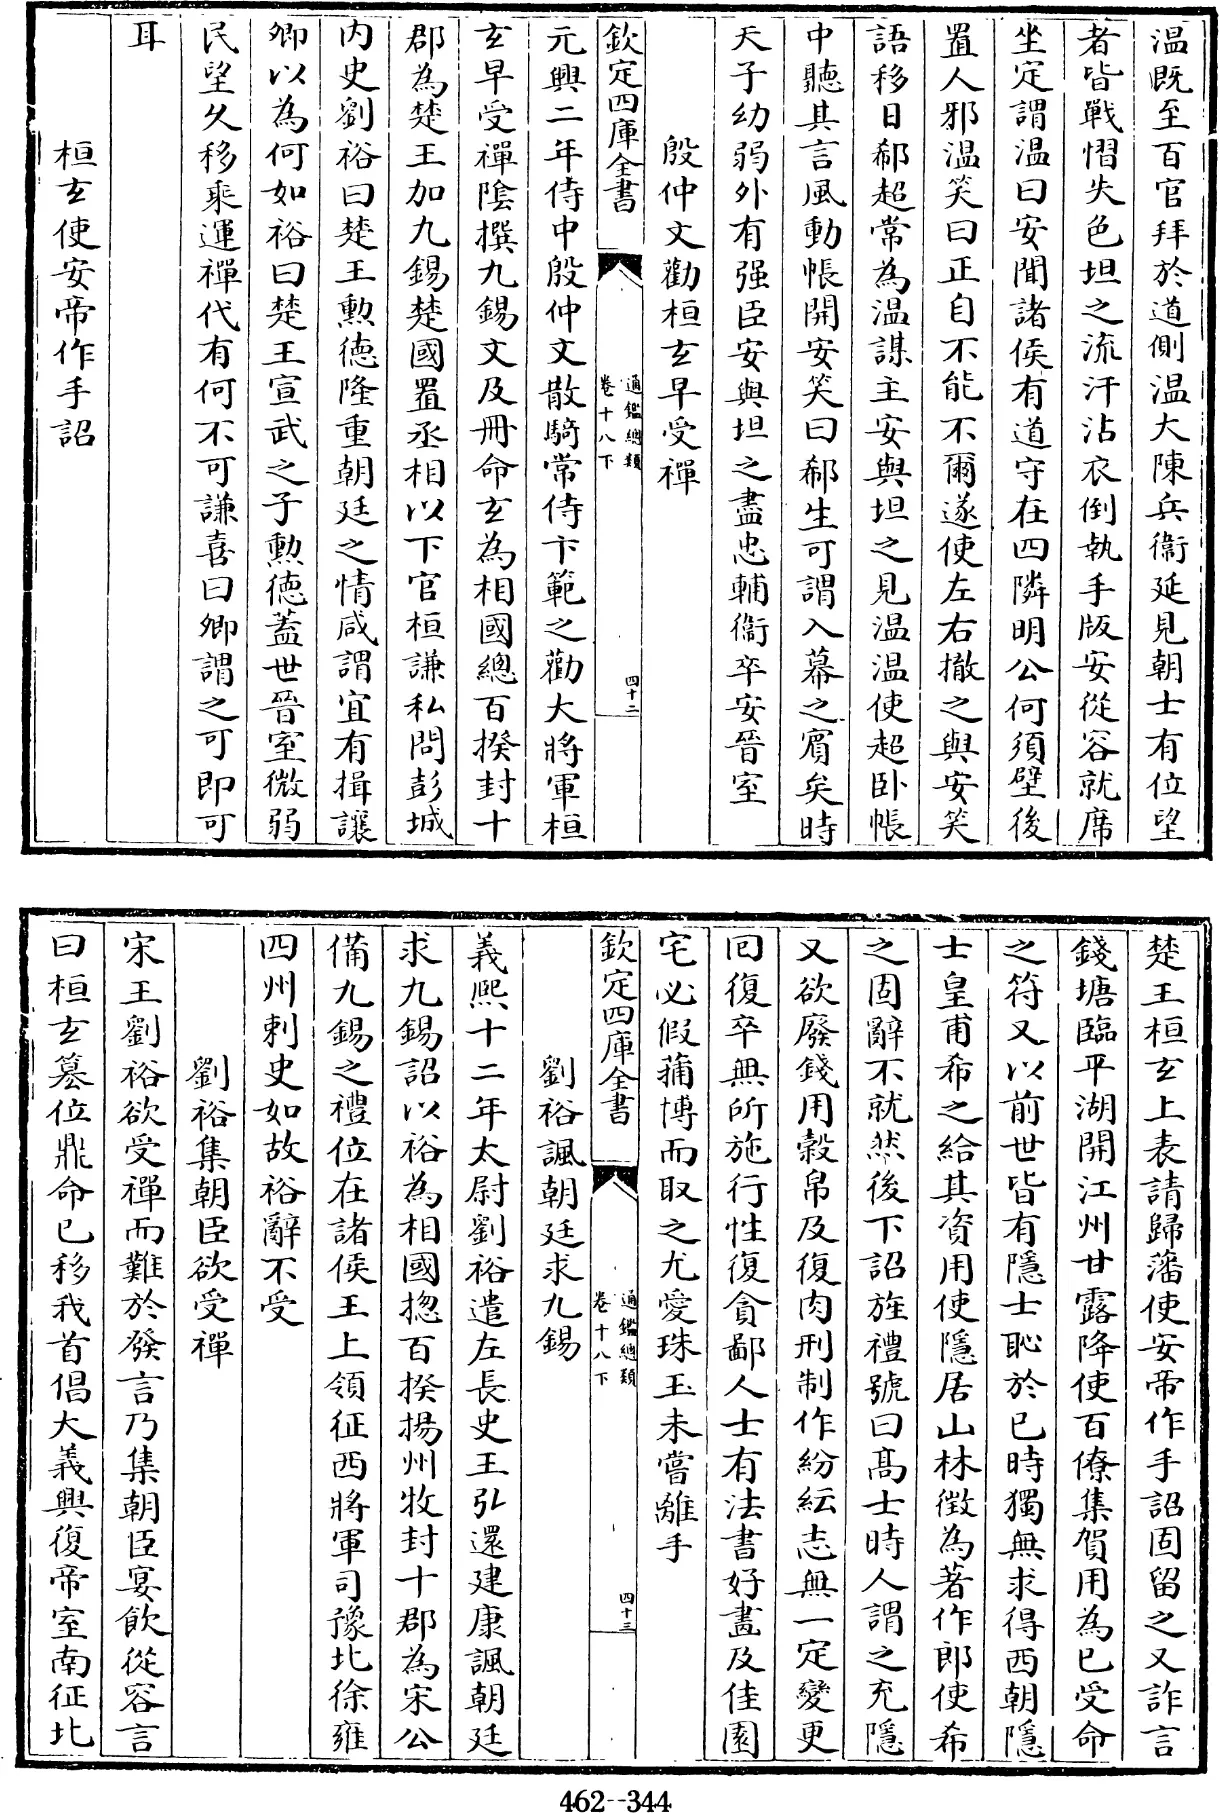 温既至百官拜於道側温大陳兵衛延見朝士有位望
者皆戰慴失色坦之流汗沾衣倒執手版安從容就席
坐定謂温曰安聞諸侯有道守在四隣明公何須壁後
置人邪温笑曰正自不能不爾遂使左右撤之與安笑
語移日郗超常為温謀主安與坦之見温温使超卧帳
中聽其言風動帳開安笑曰郗生可謂入幕之賓矣時
天子幼弱外有强臣安與坦之盡忠輔衛卒安晉室
殷仲文勸桓玄早受禪
欽定四庫全書
通鑑總類
卷十八下
四十二
元興二年侍中殷仲文散騎常侍卞範之勸大將軍桓
玄早受禪陰撰九錫文及冊命玄為相國總百揆封十
郡為楚王加九錫楚國置丞相以下官桓謙私問彭城
内史劉裕曰楚王勲德隆重朝廷之情咸謂宜有揖讓
卿以為何如裕曰楚王宣武之子勲德蓋世晉室微弱
民望久移乘運禪代有何不可謙喜曰卿謂之可即可
耳
桓玄使安帝作手詔
楚王桓玄上表請歸藩使安帝作手詔固留之又詐言
錢塘臨平湖開江州甘露降使百僚集賀用為已受命
之符又以前世皆有隱士恥於已時獨無求得西朝隱
士皇甫希之給其資用使隱居山林徵為著作郎使希
之固辭不就然後下詔旌禮號曰髙士時人謂之充隱
又欲廢錢用穀帛及復肉刑制作紛紜志無一定變更
回復卒無所施行性復貪鄙人士有法書好畫及佳園
宅必假蒱博而取之尤愛珠玉未嘗離手
欽定四庫全書
通鑑總類
卷十八下
四十三
劉裕諷朝廷求九錫
義熙十二年太尉劉裕遣左長史王弘還建康諷朝廷
求九錫詔以裕為相國揔百揆揚州牧封十郡為宋公
備九錫之禮位在諸侯王上領征西將軍司豫北徐雍
四州刺史如故裕辭不受
劉裕集朝臣欲受禪
宋王劉裕欲受禪而難於發言乃集朝臣宴飲從容言
曰桓玄篡位鼎命已移我首倡大義興復帝室南征北
462--344